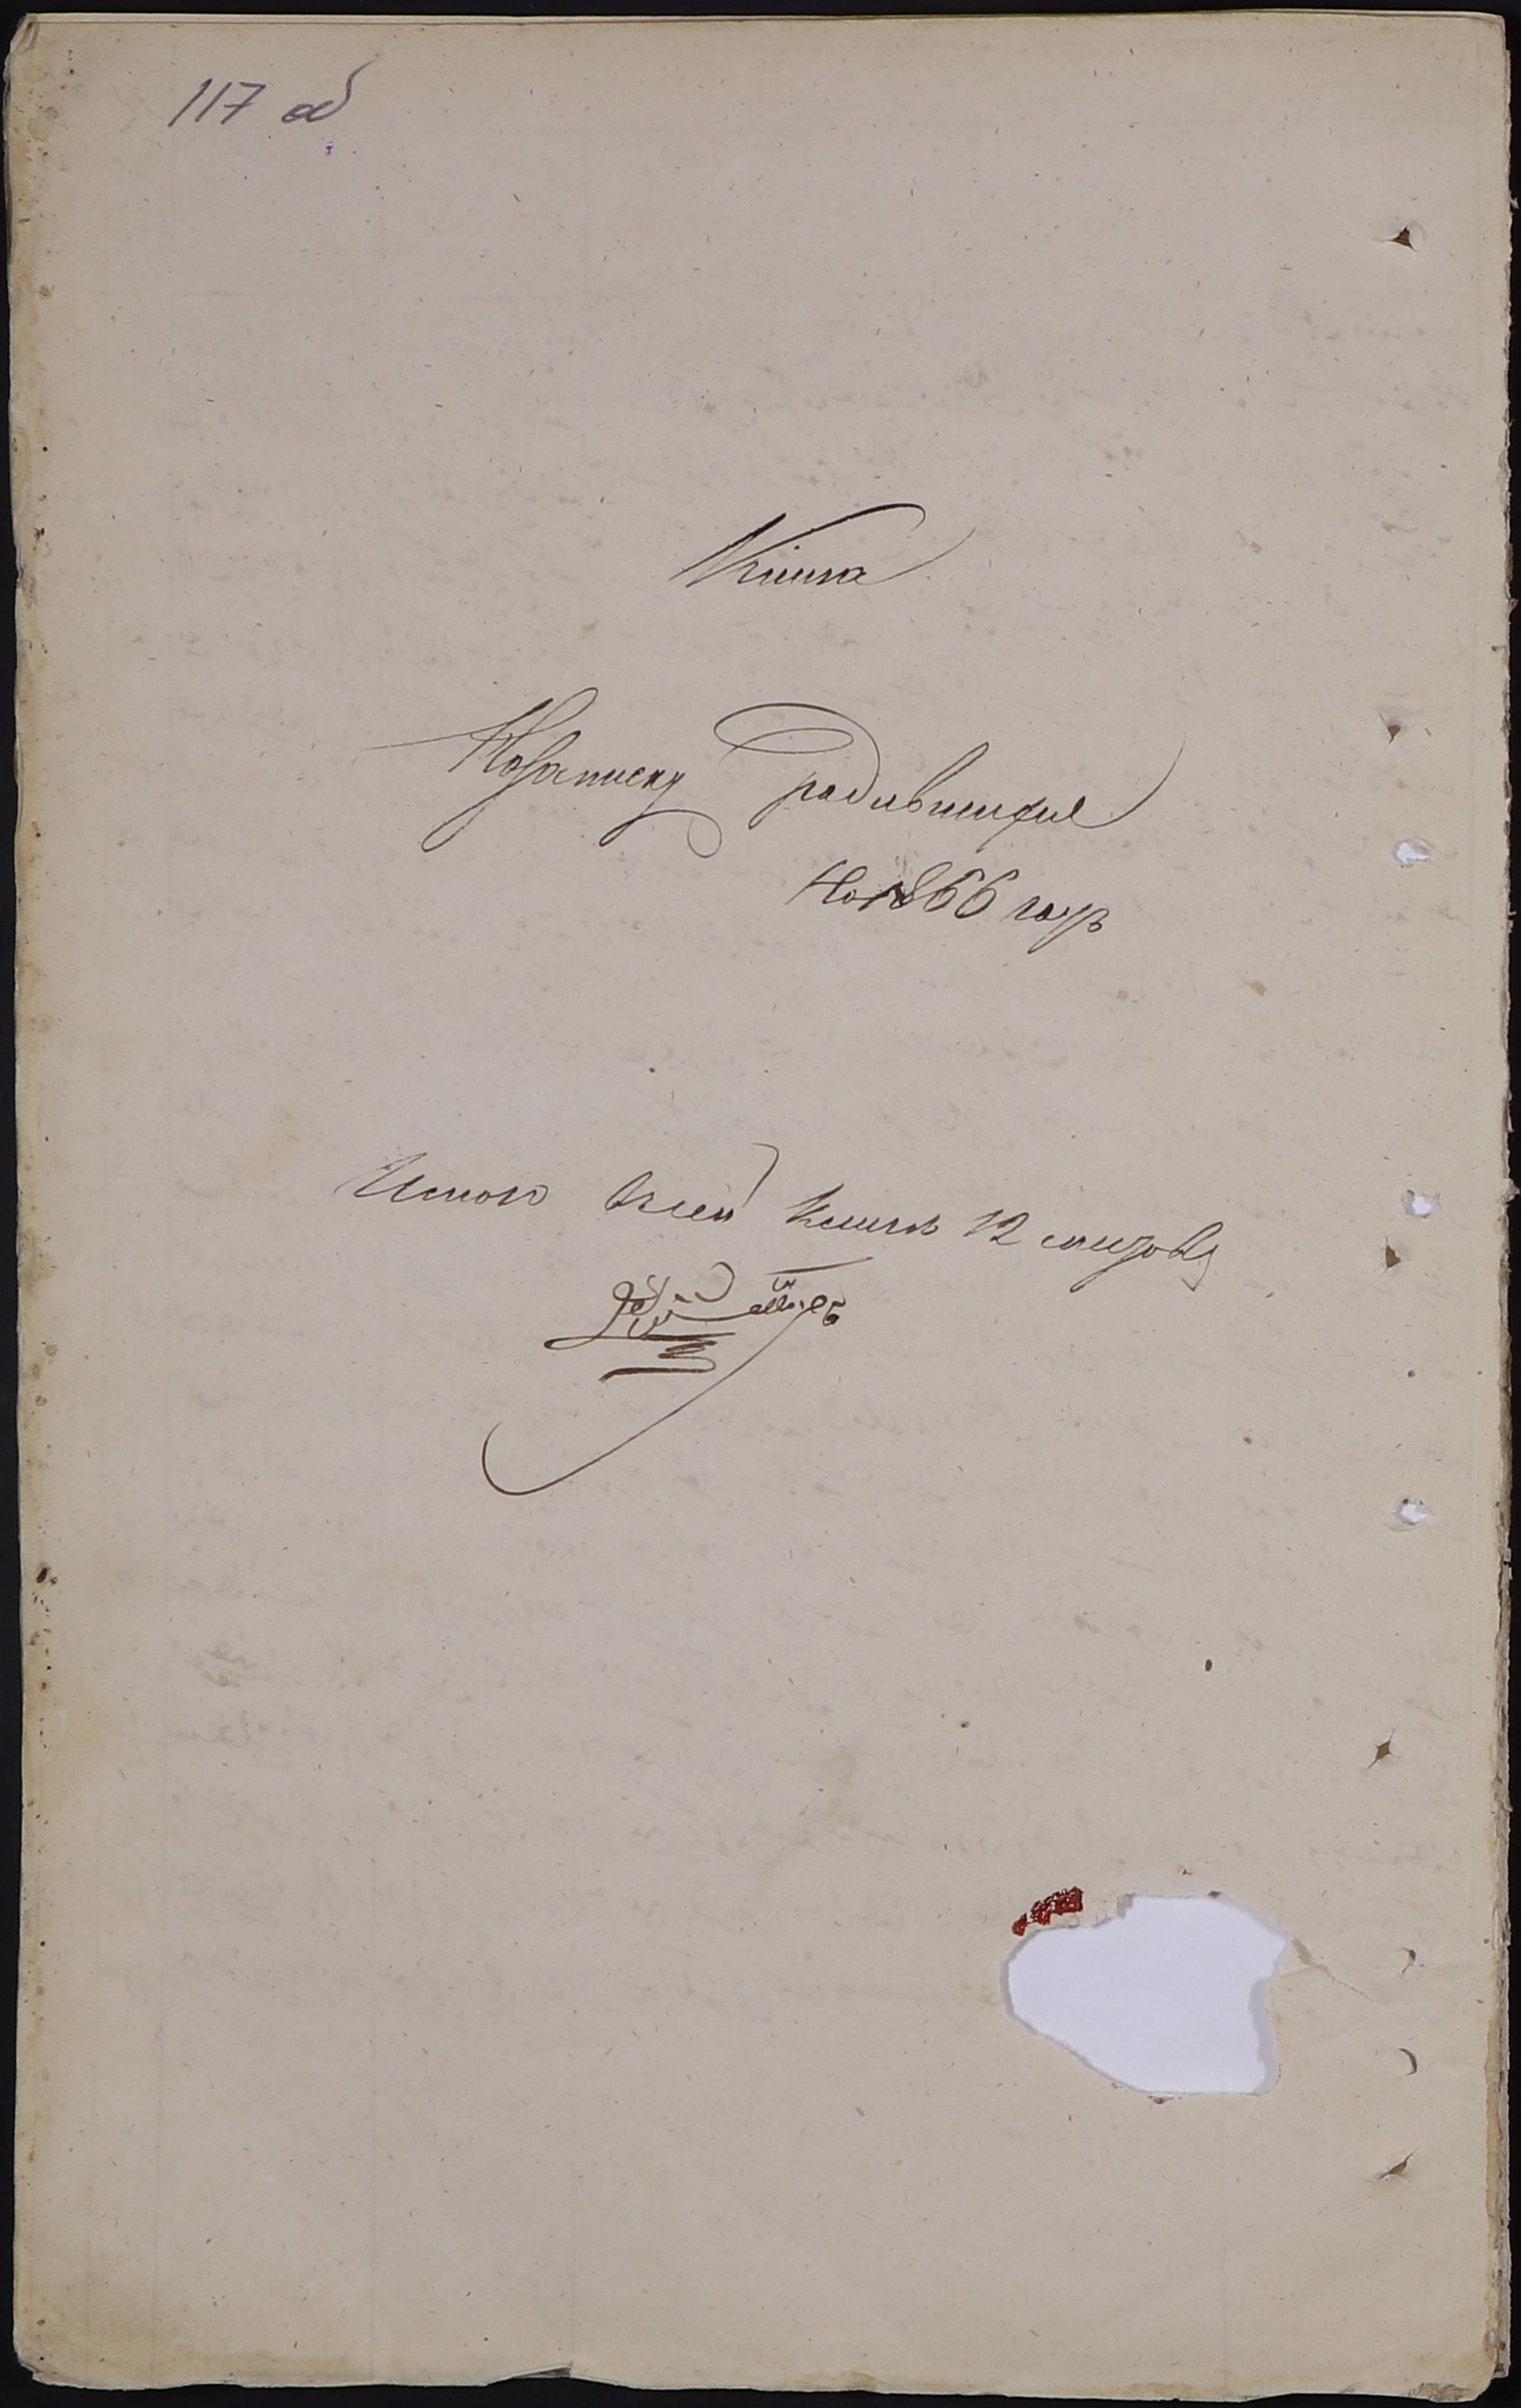 117 об
Книга
Назаписку радившихся
На 1866 годъ
Итого Всей Книги 12 листовъ